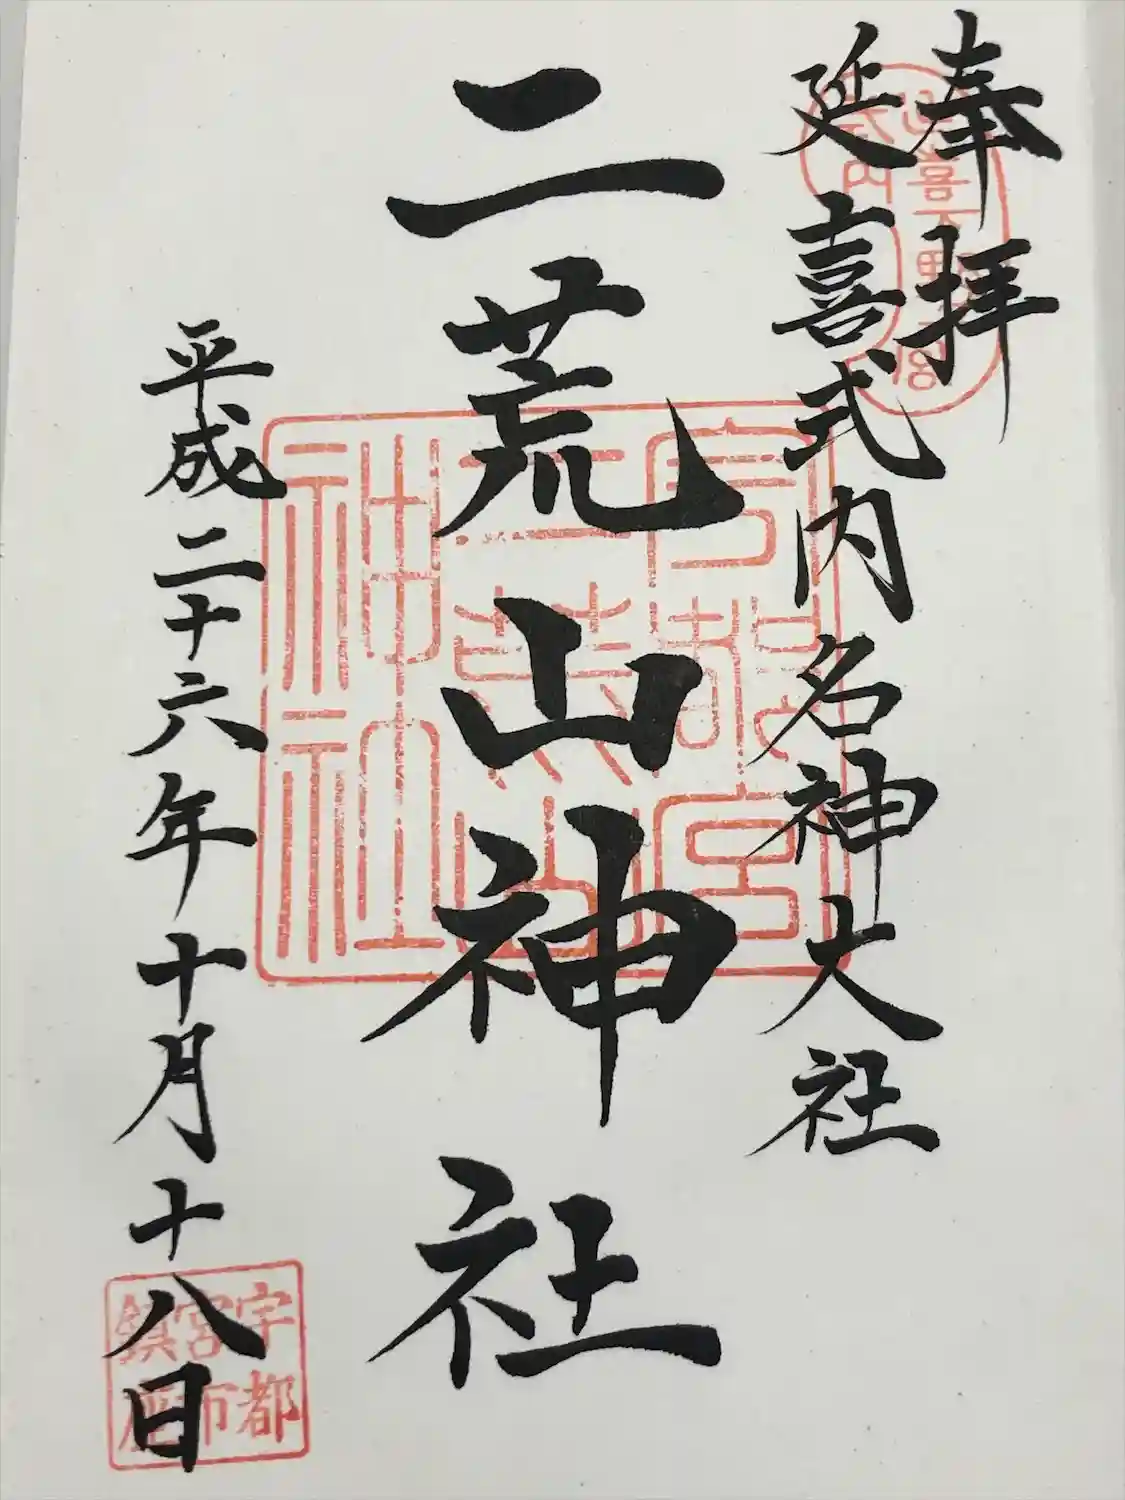 奉拝
延喜式内名神大社
二荒山神社
平成二十六年十月十八日
宇都宮二荒山神社
宇都宮市鎮座